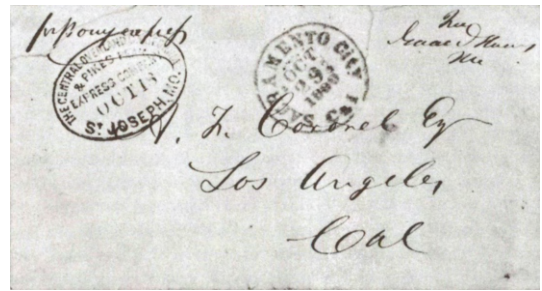 pr Pony express
THE CENTRAL OVERLAND CALIFORNIA
& PIKES PEAK
EXPRESS COMPANY
OCT 18
ST JOSEPH, MO.
SACRAMENTO CITY
OCT
29
1860
CAL
Free
Los Angeles
Cal